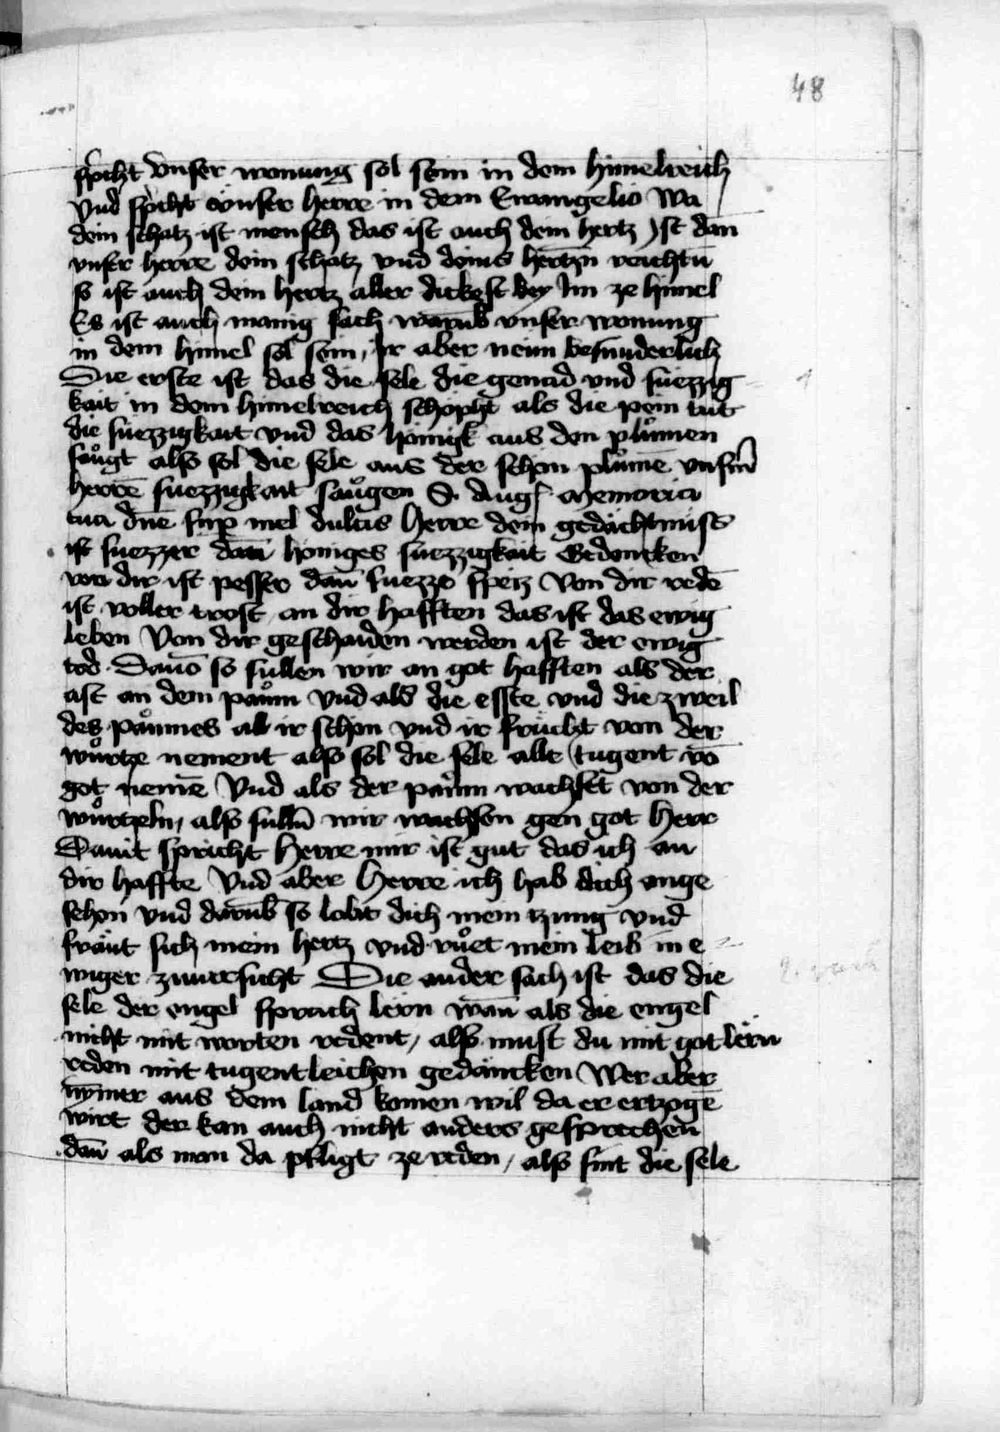 48
spͥcht vnser wonung sol sein in dem himelreich
Vnd spͥcht vnser herre in dem Ewangelio Wa
dein schatz ist mensch das ist auch dein hertz Jst dan̄
vnser herre dein schatz vnd deins hertzn̄ reichtū
so ist auch dein hertz aller dickest bey Jm ze himel
Es ist auch manig sach warūb vnser wonung
in dem himel sol sein, ir aber neun besunderlich
Die erste ist das die sele die genad vnd suezzig=
kait in dem himelreich schöpht als die pein tut
die suezzigkait vnd das hönigk aus den plůmen
saůgt also sol die sele aus der schön plůmē vnsm̄
herrē suezzigkait saůgen S. Augꝰ Memoria
tua dn̄e sup̱ mel dulcis Herre dein gedächtnuss
ist suezzer dan̄ höniges suezzigkait Gedencken
von dir ist pesser dan̄ suezze speiz Von dir redē
ist voller trost an dir hafften das ist das ewig
leben Von dir geschaiden werden ist der ewig
tod Dauō so sullen wir an got hafften als der
ast an dem paům Vnd als die esste vnd die zweil
des paůmes all ir schön vnd ir frücht von der
wůrtze nement also sol die sele alle tugent vō
got nemē Vnd als der paům wachset von der
wůrtzeln, also sulln̄ wir wachsen gen got Herr
Dauit spricht Herre mir ist gut das ich an
dir haffte Vnd aber Herre ich hab dich ange
sehen vnd darūb so lobt dich mein tzung vnd
fräut sich mein hertz vnd růet mein leib in e=
wiger zuuersicht Die ander sach ist das die
sele der engel sprach lern wan̄ als die engel
nicht mit worten redent, also must du mit got lern
reden mit tugentleichen gedäncken Wer aber
nȳmer aus dem land komen wil da er ertzogē
wirt der kan auch nicht anders gesprechen
dan̄ als man da pfligt ze reden, also sint die sele